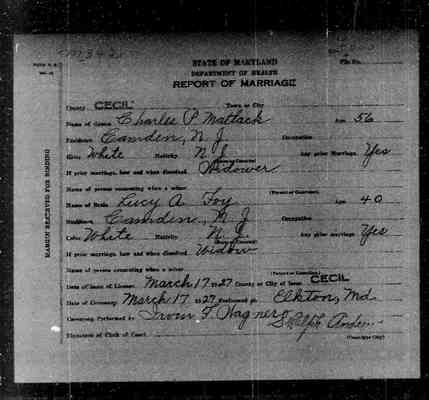 STATE OF MARYLAND
DEPARTMENT OF HEALTH
REPORT OF MARRIAGE
File No.
County CECIL Town or City
Name of Groom Charles P. Mattack Age 56
Residence Camden, N. J. Occupation
Color White Nativity N. J. Any prior Marriage Yes
If prior marriage, how and when dissolved Widower
Name of person consenting when a minor (Parent or Guardian)
Name of Bride Lucy A. Foy Age 40
Residence Camden, N. J. Occupation
Color White Nativity N. J. Any prior marriage Yes
If prior marriage, how and when dissolved Widow
Name of person consenting when a minor (Parent or Guardian)
Date of issue of License March 17 1927 County or City of Issue CECIL
Date of Ceremony March 17 1927 Performed at Elkton, Md.
Ceremony Performed by Irvin F. Wagner
Signature of Clerk of Court Ralph
MARGIN RESERVED FOR BINDING